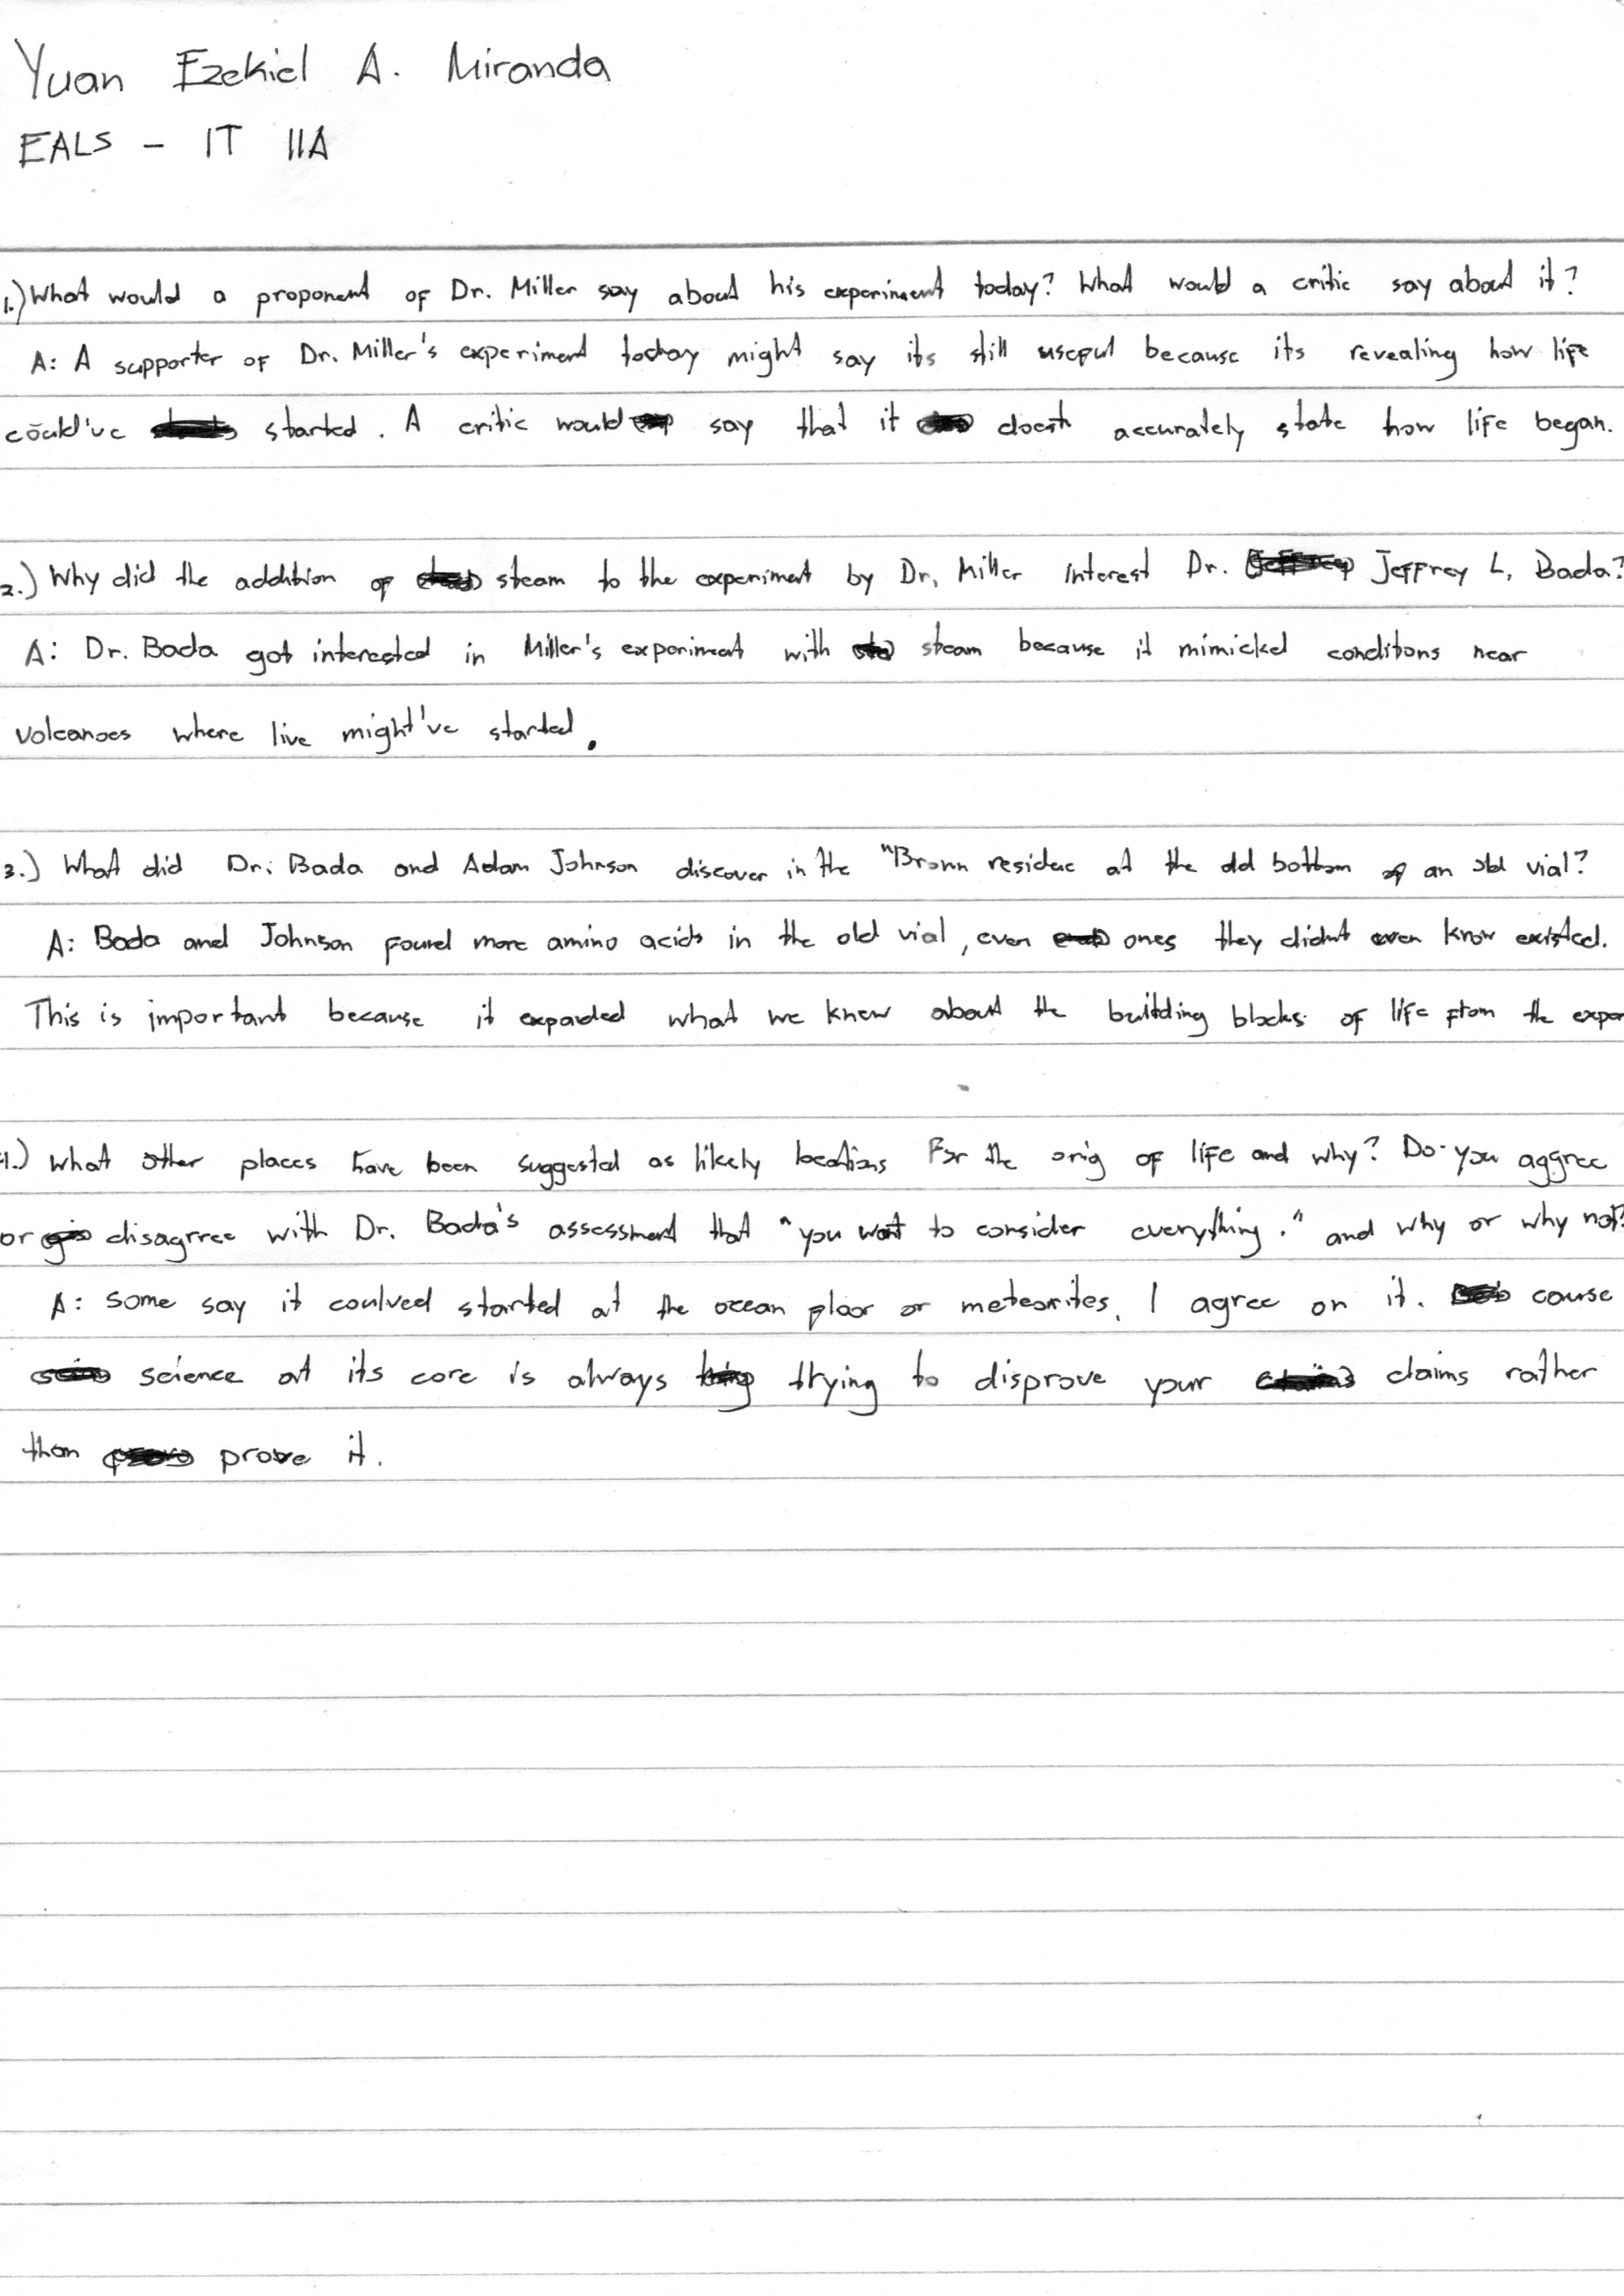 Yuan Ezekiel A. Miranda
EALS - IT 11A
1.) What would a proponent of Dr. Miller say about his experiment today? What would a critic say about it?
A: A supporter of Dr. Miller's experiment today might say its still useful because its revealing how life
could've started. A critic would say that it doesnt accurately state how life began.
2.) Why did the addition of steam to the experiment by Dr. Miller interest Dr. Jeffrey L. Bada?
A: Dr. Bada got interested in Miller's experiment with steam because it mimicked conditions near
volcanoes where live might've started.
3.) What did Dr. Bada and Adam Johnson discover in the "Brown residue at the old bottom of an old vial?
A: Bada and Johnson found more amino acids in the old vial, even ones they didnt even know existed.
This is important because it expanded what we knew about the building blocks of life from the exper
4.) What other places have been suggested as likely locations For the orig of life and why? Do you aggree
or disagrree with Dr. Bada's assessment that "you want to consider everything." and why or why not?
A: some say it coulved started at the ocean floor or meteorites. I agree on it. cause
science at its core is always trying to disprove your claims rather
than prove it.